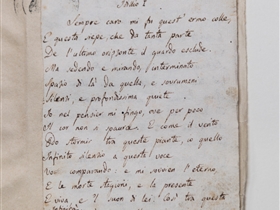 Idillio I
Sempre caro mi fu quest' ermo colle,
E questa siepe che da tanta parte
De l'ultimo orizzonte il guardo esclude.
Ma sedendo e mirando, interminato
Spazio di là da quella, e sovrumani
Silenzi, e profondissima quiete
Io nel pensier mi fingo, ove per poco
Il cor non si spaura. E come il vento
Odo stormir tra queste piante, io quello
Infinito silenzio a questa voce
Vo comparando: e mi sovvien l'eterno,
E le morte stagioni, e la presente
E viva, e 'l suon di lei. Così tra questa